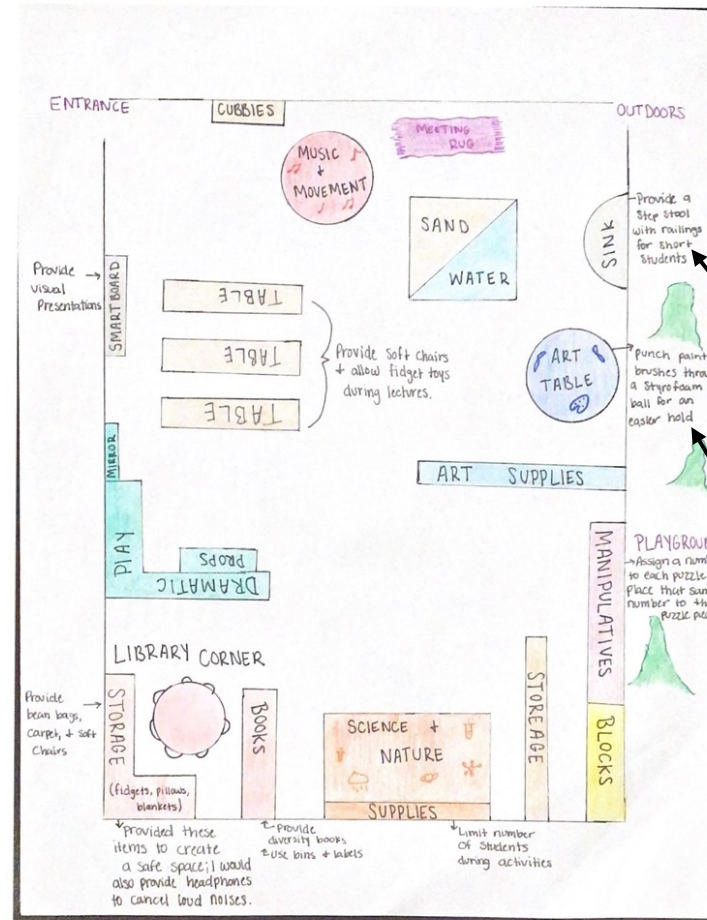 ENTRANCE
CUBBIES
OUTDOORS
MEETING
RUG
MUSIC
+
MOVEMENT
SAND
WATER
SINK
Provide a
Step stool
with railings
for short
students
Provide
visual
Presentations
SMARTBOARD
TABLE
TABLE
TABLE
Provide soft chairs
+ allow fidget toys
during lectures.
ART
TABLE
punch paint
brushes
a Styrofoam
ball for an
easier hold
MIRROR
ART SUPPLIES
PLAY
PROPS
DRAMATIC
MANIPULATIVES
Assign a
to each puzzle
place that
number to
puzzle
LIBRARY CORNER
Provide
bean bags,
carpet, + soft
chairs
STORAGE
(fidgets, pillows,
blankets)
BOOKS
SCIENCE +
NATURE
SUPPLIES
STOREAGE
BLOCKS
Provided these
items to create
a safe space; I would
also provide headphones
to cancel loud noises.
Provide
diversity books
Use bins + labels
Limit number
of students
during activities